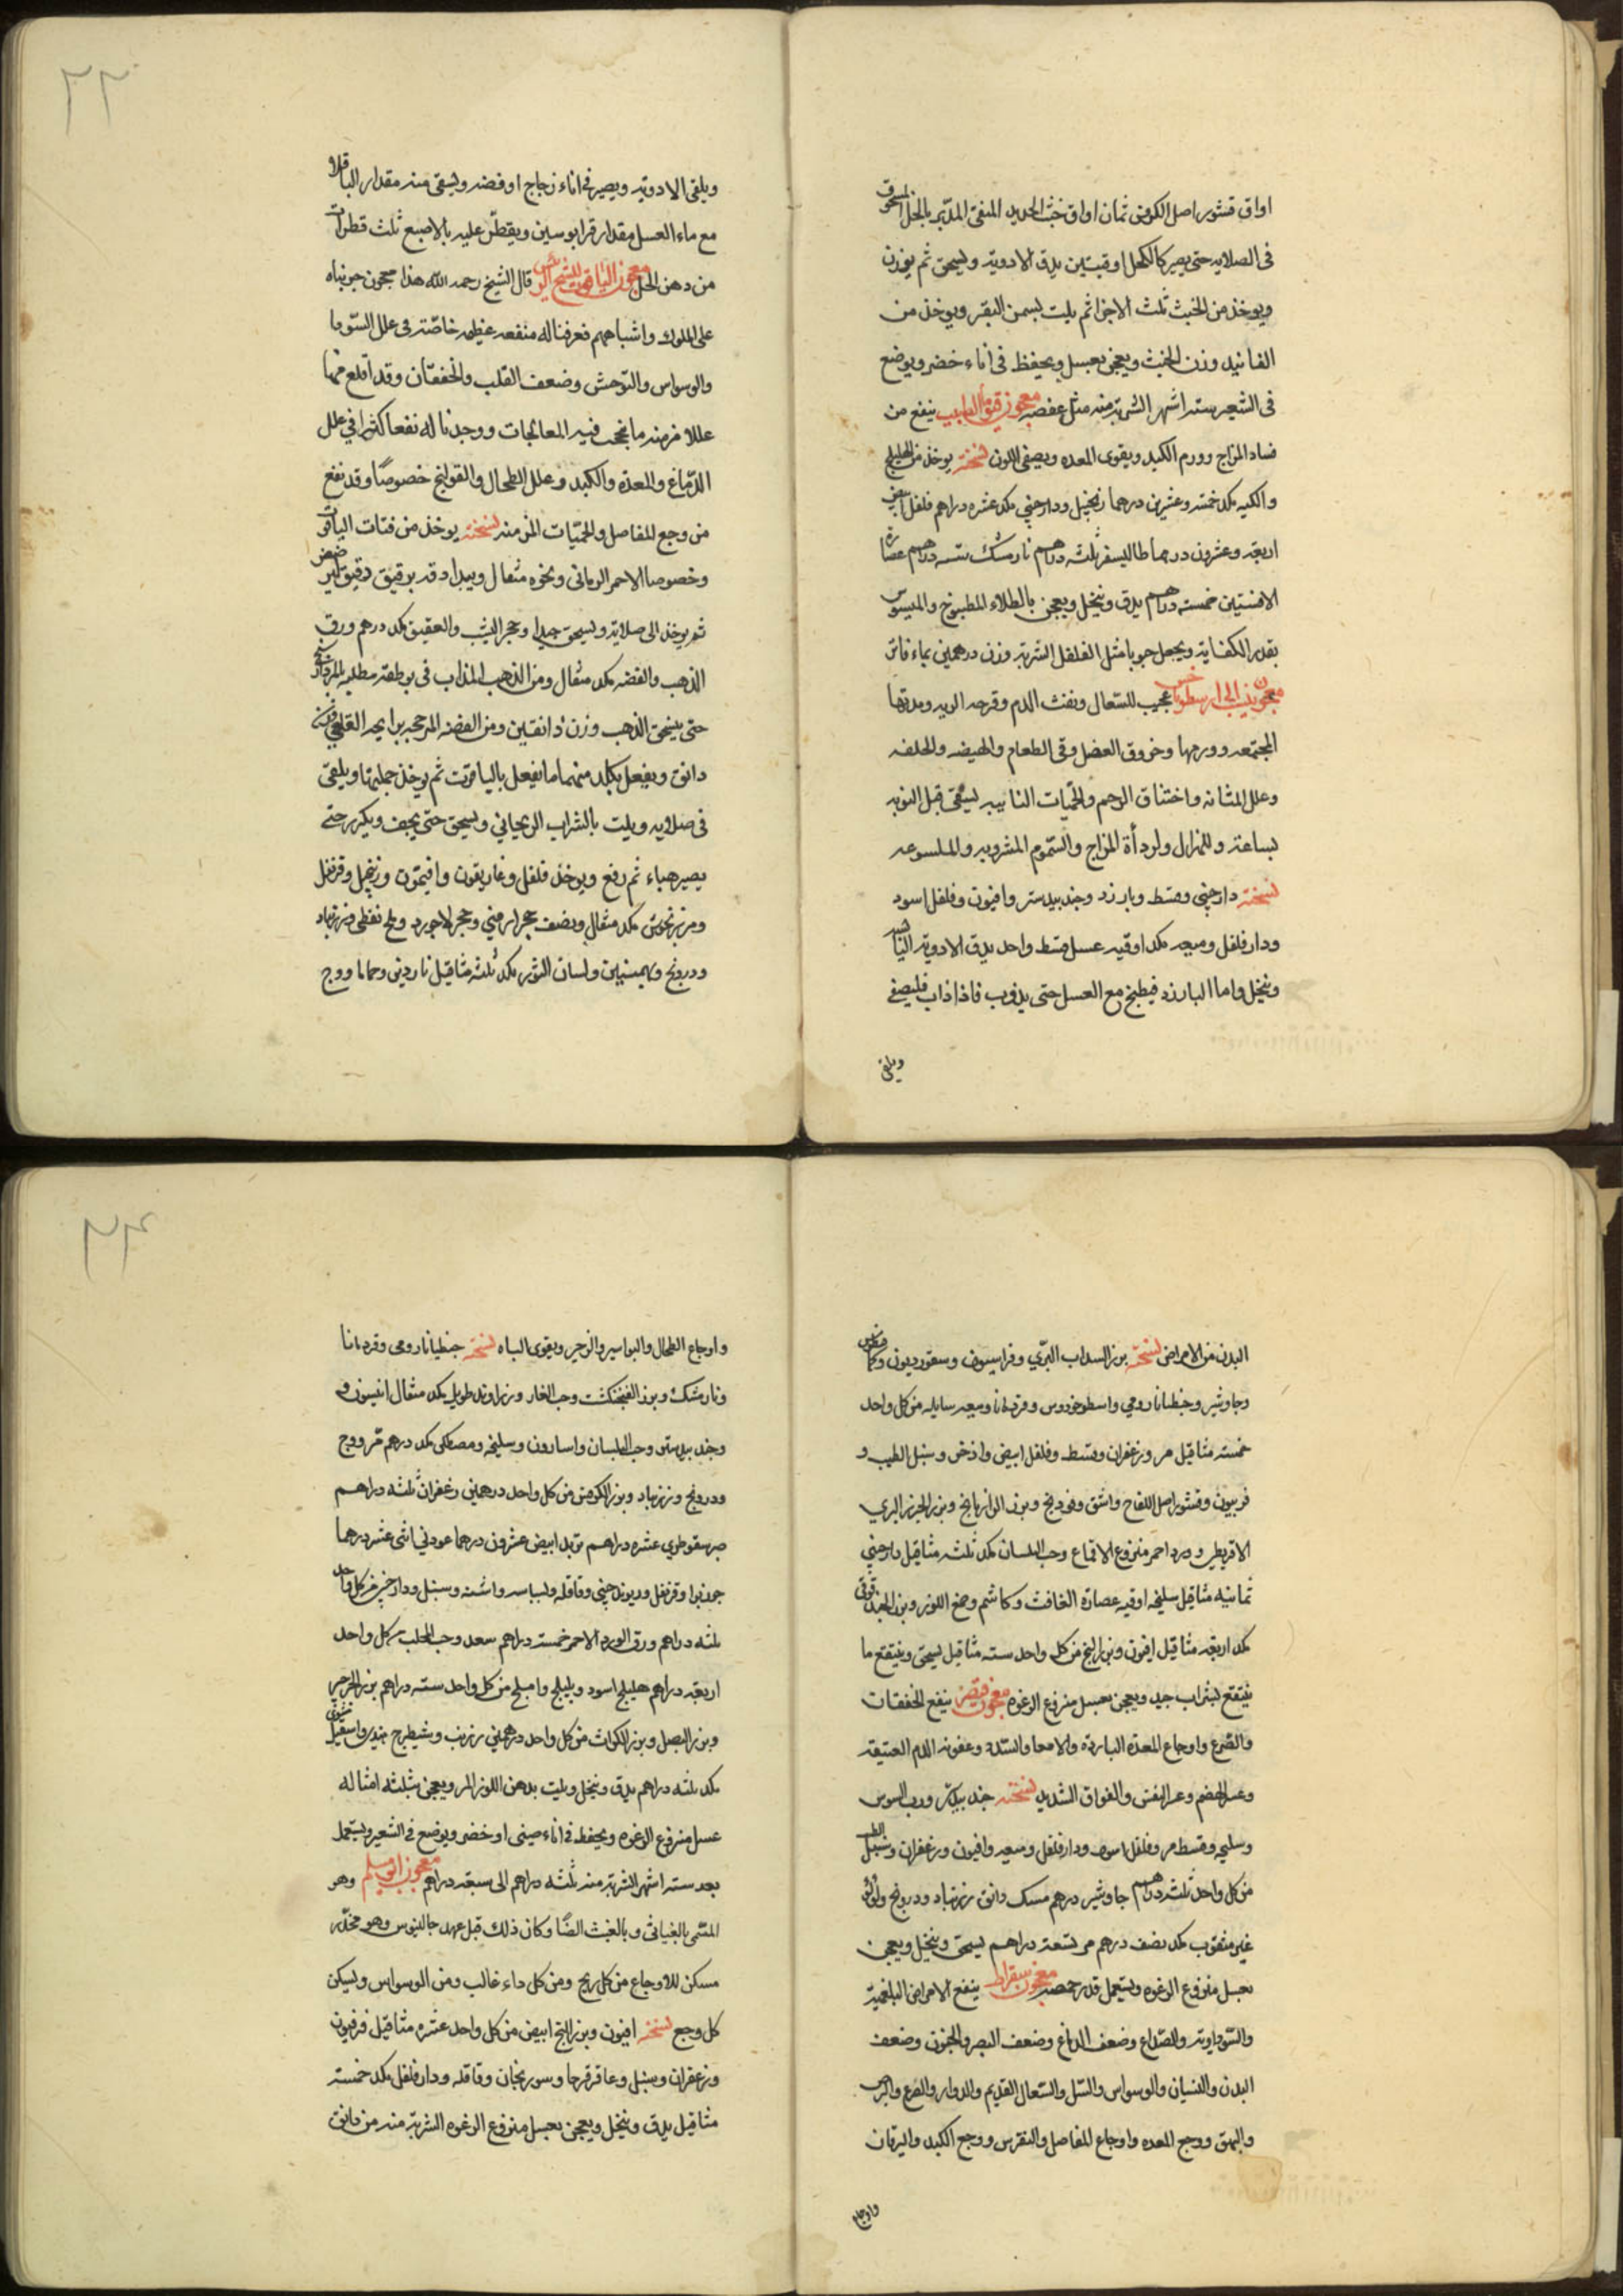 اواق قشور اصل الكرفس ثمان اواق خبث الحديد المنقى المدبر بالخل المسحوق
فى الصلايه حتى يصير كالكحل اوقيتين يدق الادويه ويسحق ثم يوزن
ويوخذ من الخبث ثلث الاجزا ثم يلت بسمن البقر ويوخذ من
الفانيد وزن الخبث ويعجن بعسل ويحفظ فى اناء خضر ويوضع
فى الشعير سته اشهر الشربة منه مثل عفصه معجون الطبيب ينفع من
فساد المزاج وورم الكبد ويقوى المعده ويصفى اللون نسخته يوخذ من
مكد خمسة وعشرين درهما زنجبيل ودارچينى مكد عشره دراهم فلفل ابيض
اربعة وعشرون درهما طاليسفر ثلثه دراهم نارمشك سته دراهم عصارة
الافسنتين خمسته دراهم يدق وينخل ويعجن بالطلاء المطبوخ والميسوس
بقدر الكفاية ويجعل حبوبا مثل الفلفل الشربة وزن درهمين بماء فاتر
معجون ينسب الى ارسطوماخس عجيب للسعال ونفث الدم وقرحه الريه ومدتها
المجتمعه وورمها وخروق العضل وقى الطعام والهيضه والخلفه
وعلل المثانه واختناق الرحم والحميات النايبه يسقى قبل النوبه
بساعة وللهزال ولردأة المزاج والسموم المشروبه والملسوعه
نسخته دارچينى وقسط وبارزد وجندبيدستر وافيون وفلفل اسود
ودارفلفل وميعه مكد اوقيه عسل قسط واحد يدق الادوية اليابسه
وينخل واما البارزد فيطبخ مع العسل حتى يذوب فاذا ذاب فليصفى
ويلقى
٣٣
ويلقى الادويه ويصير فى اناء زجاج او فضه ويسقى منه مقدار الباقلاء
مع ماء العسل مقدار قرابوسين ويقطر عليه بالاصبع ثلث قطرات
من دهن الخل معجون الياقوت للشيخ الرئيس قال الشيخ رحمه الله هذا معجون جربناه
على الملوك واشباههم فعرفنا له منفعه عظيمه خاصة فى علل السودا
والوسواس والتوحش وضعف القلب والخفقان وقد اقلع منها
عللا مزمنه ما نجحت فيه المعالجات ووجدنا له نفعا كثيرا فى علل
الدماغ والمعدة والكبد وعلل الطحال والقولنج خصوصا وقد نفع
من وجع المفاصل والحميات المزمنه نسخته يوخذ من فتات الياقوت
وخصوصا الاحمر الرمانى ونحوه مثقال ويبدا دقه برقيق رقيق ليرضض
ثم يوخذ الى صلاية ويسحق جيدا وحجر اليشب والعقيق مكد درهم ورق
الذهب والفضه مكد مثقال ومن الذهب المذاب فى بوطقه مطليه بالمرداسنج
حتى ينسحق الذهب وزن دانقين ومن الفضه المرججه برايحه القلعى وزن
دانق ويفعل بكلد منهما ما يفعل بالياقوت ثم يوخذ جملتها ويلقى
فى صلايه ويلت بالشراب الريحانى ويسحق حتى يجف ويكرر حتى
يصير هباء ثم رفع ويوخذ فلفل وغاريقون وافيتمون وزنجبيل وقرنفل
ومرزنجوش مكد مثقال ونصف حجر ارمنى وحجر لاجورد وملح نفطى وزرنباد
ودرونج وبهمنيين ولسان الثور مكد ثلثه مثاقيل ناردين وحماما ووج
البدن من الامراض نسخته بزر السداب البرى وفراسيون وسقورديون وكمافيطوس
وجاوشير وجنطيانا رومى واسطوخودوس وقردمانا وميعه سايله من كل واحد
خمسته مثاقيل مر وزعفران وقسط وفلفل ابيض واذخر وسنبل الطيب و
فربيون وقشور اصل اللفاح واشق وفودنج وبزر الرازيانج وبزر الجزر البرى
الاقريطى وورد احمر منزوع الاقماع وحب البلسان مكد ثلثه مثاقيل دارچينى
ثمانيه مثاقيل سليخه اوقيه عصارة الغافث وكاشم وصمغ اللوز وبزر الحندقوقى
مكد اربعة مثاقيل افيون وبزر البنج من كل واحد سته مثاقيل يسحق وينتقع ما
ينتقع بشراب جيد ويعجن بعسل منزوع الرغوه معجون قيصر ينفع الخفقات
والصرع واوجاع المعدة الباردة والامعا والسدد وعفونه الدم العتيقه
وعسر الهضم وعسر النفس والفواق الشديد نسخته جندبيدستر ورب السوس
وسليخه وقسط مر وفلفل اسود ودارفلفل وميعه وافيون وزعفران وسنبل الطيب
من كل واحد ثلثه دراهم جاوشير درهم مسك دانق زرنباد ودرونج ولؤلؤ
غير مثقوب مكد نصف درهم مر تسعة دراهم يسحق وينخل ويعجن
بعسل منزوع الرغوه ويستعمل قدر حمصه معجون سقراط ينفع الامراض البلغمية
والسوداوية والصداع وضعف الدماغ وضعف البصر والجنون وضعف
البدن والنسيان والوسواس والسل والسعال القديم والدوار والصرع والبرص
والبهق ووجع المعده واوجاع المفاصل والنقرس ووجع الكبد واليرقان
واوجاع
٣٤
واوجاع الطحال والبواسير والزحير ويقوى الباه نسخته جنطيانا رومى وقردمانا
ونارمشك وبزر الفنجنكشت وحب الغار وزراوند طويل مكد مثقال انيسون و
وجندبيدستر وحب البلسان واسارون وسليخه ومصطكى مكد درهم مر ووج
ودرونج وزرنباد وبزر الكرفس من كل واحد درهمين زعفران ثلثه دراهم
صبر سقوطرى عشره دراهم تربد ابيض عشرون درهما عود نى اثنى عشر درهما
جوزبوا وقرنفل وريوند چينى وقاقله وبسباسه واشنه وسنبل ودارچينى من كل واحد
ثلثه دراهم ورق الورد الاحمر خمسته دراهم سعد وحب المحلب من كل واحد
اربعة دراهم هليلج اسود وبليلج واملج من كل واحد سته دراهم بزر الجرجير
وبزر البصل وبزر الكراث من كل واحد درهمين زرنب وشيطرج هندى واسقيل مشوى
مكد ثلثه دراهم يدق وينخل ويلت بدهن اللوز المر ويعجن بثلثه امثاله
عسل منزوع الرغوه ويحفظ فى اناء صينى او خضر ويوضع فى الشعير ويستعمل
بعد سته اشهر الشربة منه ثلثه دراهم الى سبعة دراهم معجون ابو مسلم وهو
المسمى بالغياثى وبالغيث ايضا وكان ذلك قبل عهد جالينوس وهو مخدر
مسكن للاوجاع من كل ريح ومن كل داء غالب ومن الوسواس ويسكن
كل وجع نسخته افيون وبزر البنج ابيض من كل واحد عشره مثاقيل فرفيون
وزعفران وسنبل وعاقرقرحا وسورنجان وقاقله ودارفلفل مكد خمسته
مثاقيل يدق وينخل ويعجن بعسل منزوع الرغوه الشربة منه من دانق